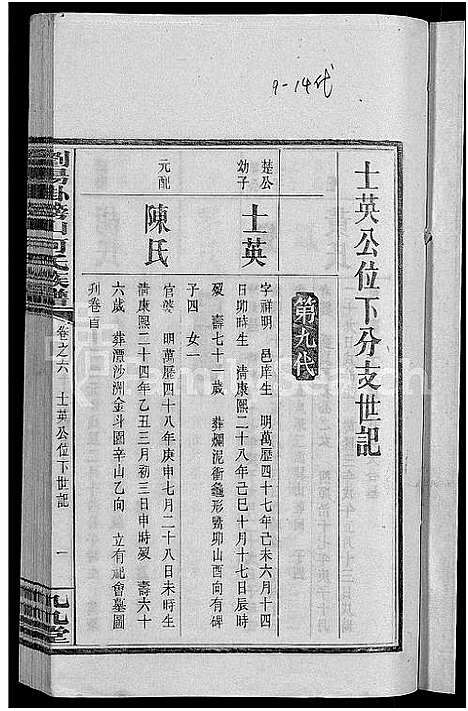 9-14代
士英公位下分支世記
第九代
楚公幼子
士英
字祥明 邑庠生 明萬歷四十七年己未六月十四
日卯時生 清康熙二十八年己巳十月十七日辰時
歿 壽七十一歲 葬爛泥衝龜形 卯山酉向有碑
子四 女一
元配
陳氏
官婆 明萬歷四十八年庚申七月二十八日未時生
清康熙二十四年乙丑三月初三日申時歿 壽六十
六歲 葬潭沙洲金斗圖辛山乙向 立有祀會墓圖
刋卷首
族譜
卷之六 士英公位下世記 一
九九堂